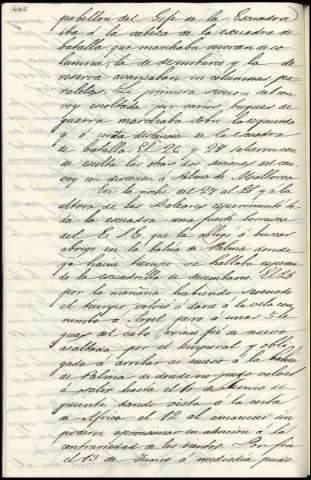 pabellon del Gefe de la Escuadra
iba á la cabeza de la escuadra de
batalla que marchaba en orden de co
lumna; la de desembarco y la de
reserva avanzaban en columnas pa-
ralelas. La primera seccion del con
voy escoltada por varios buques de
guerra marchaba sobre la izquierda
y á corta distancia de la escuadra
de batalla. El 26 y 27 salieron con
su escolta las otras dos secciones del con
voy en direccion á Palma de Mallorca
En la noche del 27 al 28 y á la
altura de las Baleares esperimentó to
da la escuadra una fuerte borrasca
del E.S.E. que la obligó á buscar
abrigo en la bahia de Palma donde
ya hacia tiempo se hallaba esperan
do la escuadrilla de desembarco. El 28
por la mañana habiendo serenado
el tiempo, volvió á darse á la vela con
rumbo á Argel pero á unas 5 le
guas del cabo Caxines fué de nuevo
asaltada por el temporal y obli
gada á arribar de nuevo á la bahia
de Palma de donde no pudo volver
á salir hasta el 10 de Junio si
guiente dando vista á la costa
de Africa el 12 al amanecer sin
poderse aproximar en atencion á la
contrariedad de los vientos. Por fin
el 13 de Junio á mediodia pudo